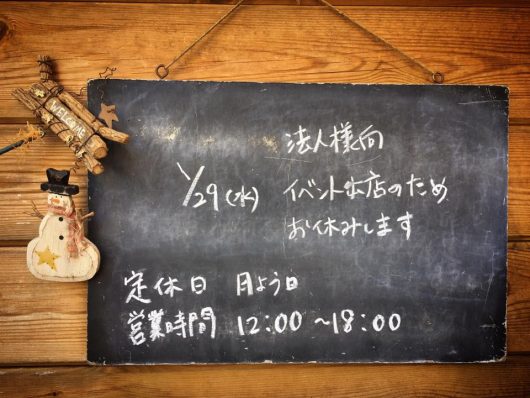 WELCOME
法人様向
1/29(水) イベント出店のため
お休みします
定休日 月よう日
営業時間 12:00~18:00